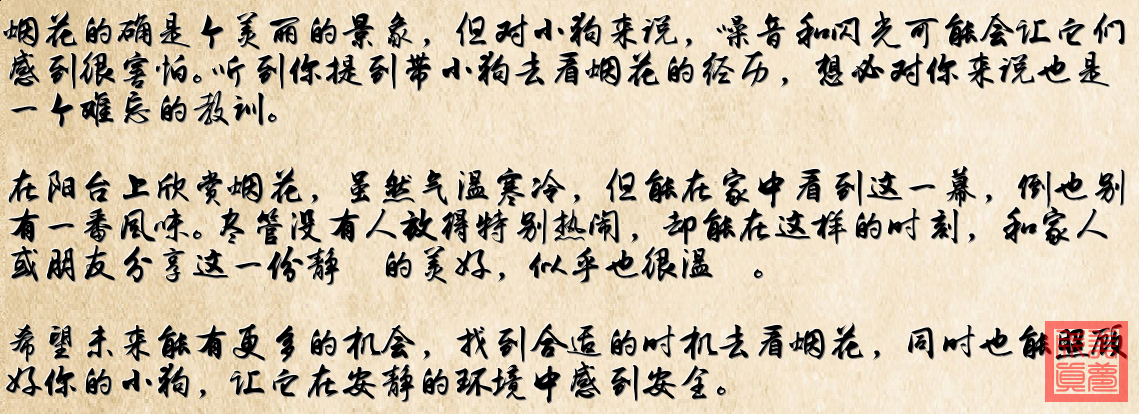 烟花的确是个美丽的景象，但对小狗来说，噪音和闪光可能会让它们
感到很害怕。听到你提到带小狗去看烟花的经历，想必对你来说也是
一个难忘的教训。
在阳台上欣赏烟花，虽然气温寒冷，但能在家中看到这一幕，倒也别
有一番风味。尽管没有人放得特别热闹，却能在这样的时刻，和家人
或朋友分享这一份静 的美好，似乎也很温 。
希望未来能有更多的机会，找到合适的时机去看烟花，同时也能照顾
好你的小狗，让它在安静的环境中感到安全。